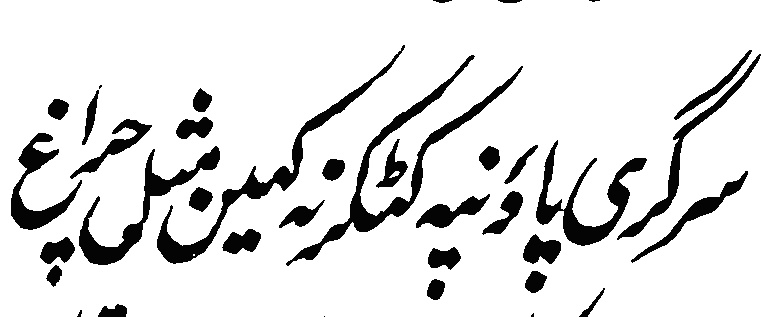 سرگری پاؤنپہ کٹکر نہ کہین مثل چراغ